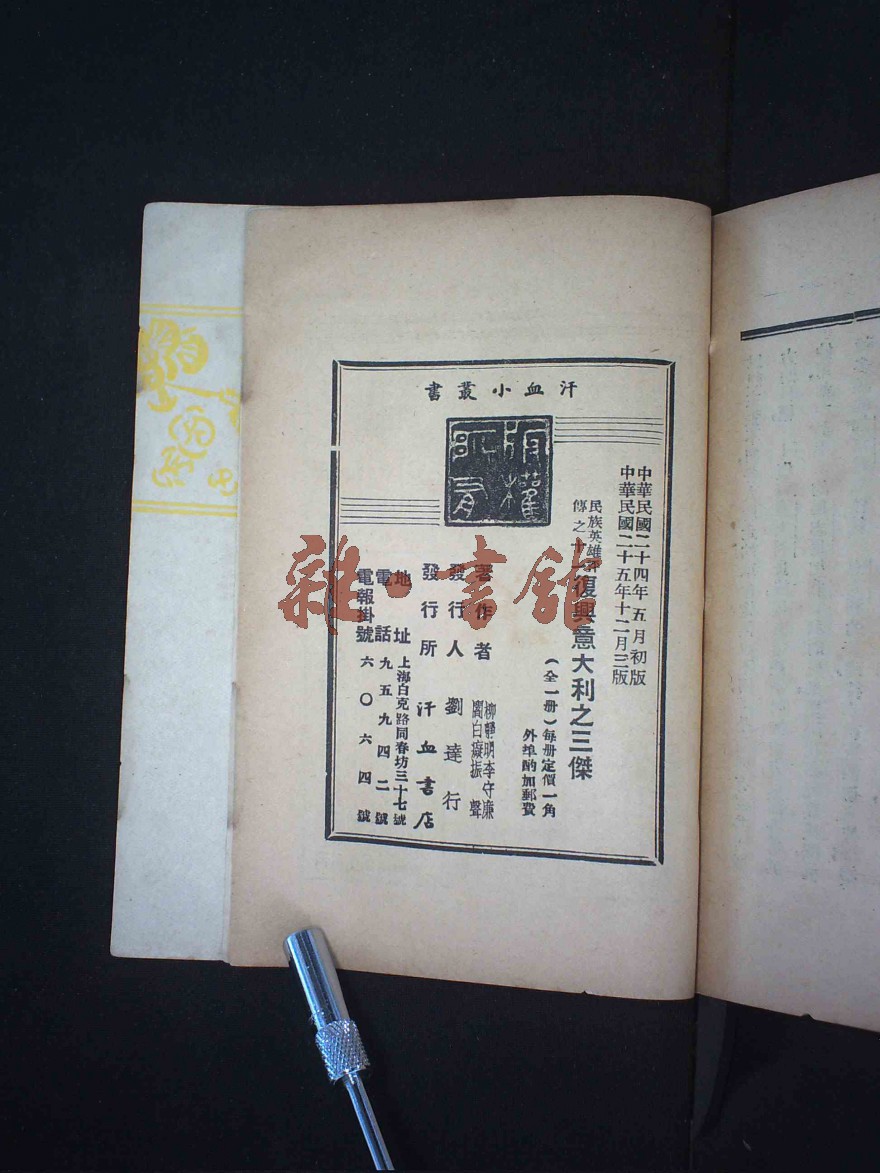 汗血小叢書
版權所有
中華民國二十四年五月初版
中華民國二十五年十二月三版
民族英雄評
傳之十
復興意大利之三傑
（全一冊）每冊定價一角
外埠酌加郵費
著作者
柳靜明李守廉
閻白癡振聲
發行人 劉達行
發行所 汗血書店
地址 上海白克路同春坊三十七號
電話 九五九四二號
電報掛號 六〇六四號
雜·書館